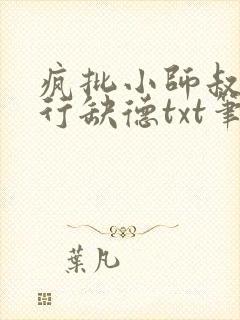 疯批小师叔
行缺德txt笔
葉凡